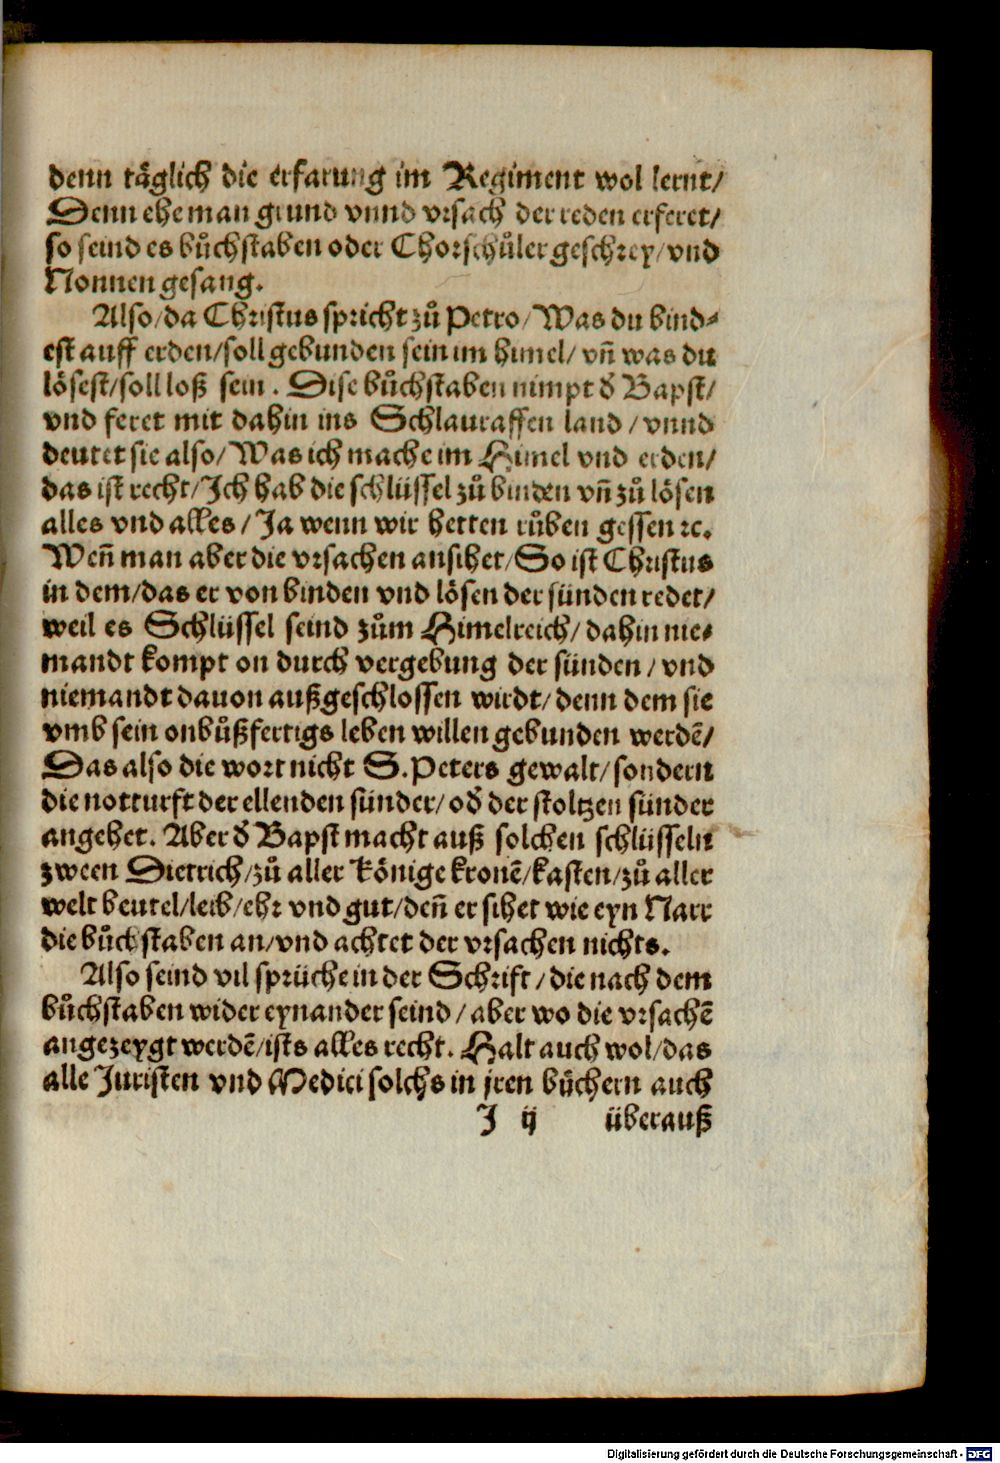 denn täglich die erfarung im Regiment wol lernt/
Denn ehe man grund vnnd vrsach der reden erferet/
so seind es bůchstaben oder Chorschůler geschrey/ vnd
Nonnen gesang.
Also/ da Christus spricht zů Petro/ Was du bind⸗
est auff erden/ soll gebunden sein im himel/ vñ was du
lösest/ soll loß sein. Dise bůchstaben nimpt d̕ Bapst/
vnd feret mit dahin ins Schlauraffen land/ vnnd
deutet sie also/ Was ich mache im Himel vnd erden/
das ist recht/ Ich hab die schlüssel zů binden vñ zů lösen
alles vnd alles/ Ja wenn wir hetten růben gessen ꝛc.
Weñ man aber die vrsachen ansihet/ So ist Christus
in dem/ das er von binden vnd lösen der sünden redet/
weil es Schlüssel seind zům Himelreich/ dahin nie⸗
mandt kompt on durch vergebung der sünden/ vnd
niemandt dauon außgeschlossen wirdt/ denn dem sie
vmb sein onbůßfertigs leben willen gebunden werdē/
Das also die wort nicht S. Peters gewalt/ sondern
die notturft der ellenden sünder/ od̕ der stoltzen sünder
angehet. Aber d̕ Bapst macht auß solchen schlüsseln
zween Dietrich/ zů aller Könige kronē/ kasten/ zů aller
welt beutel/ leib/ ehr vnd gut/ deñ er sihet wie eyn Narr
die bůchstaben an/ vnd achtet der vrsachen nichts.
Also seind vil sprüche in der Schrift/ die nach dem
bůchstaben wider eynander seind/ aber wo die vrsachē
angezeygt werdē/ ists alles recht. Halt auch wol/ das
alle Juristen vnd Medici solchs in jren bůchern auch
J ij überauß
Digitalisierung gefördert durch die Deutsche Forschungsgemeinschaft - DFG